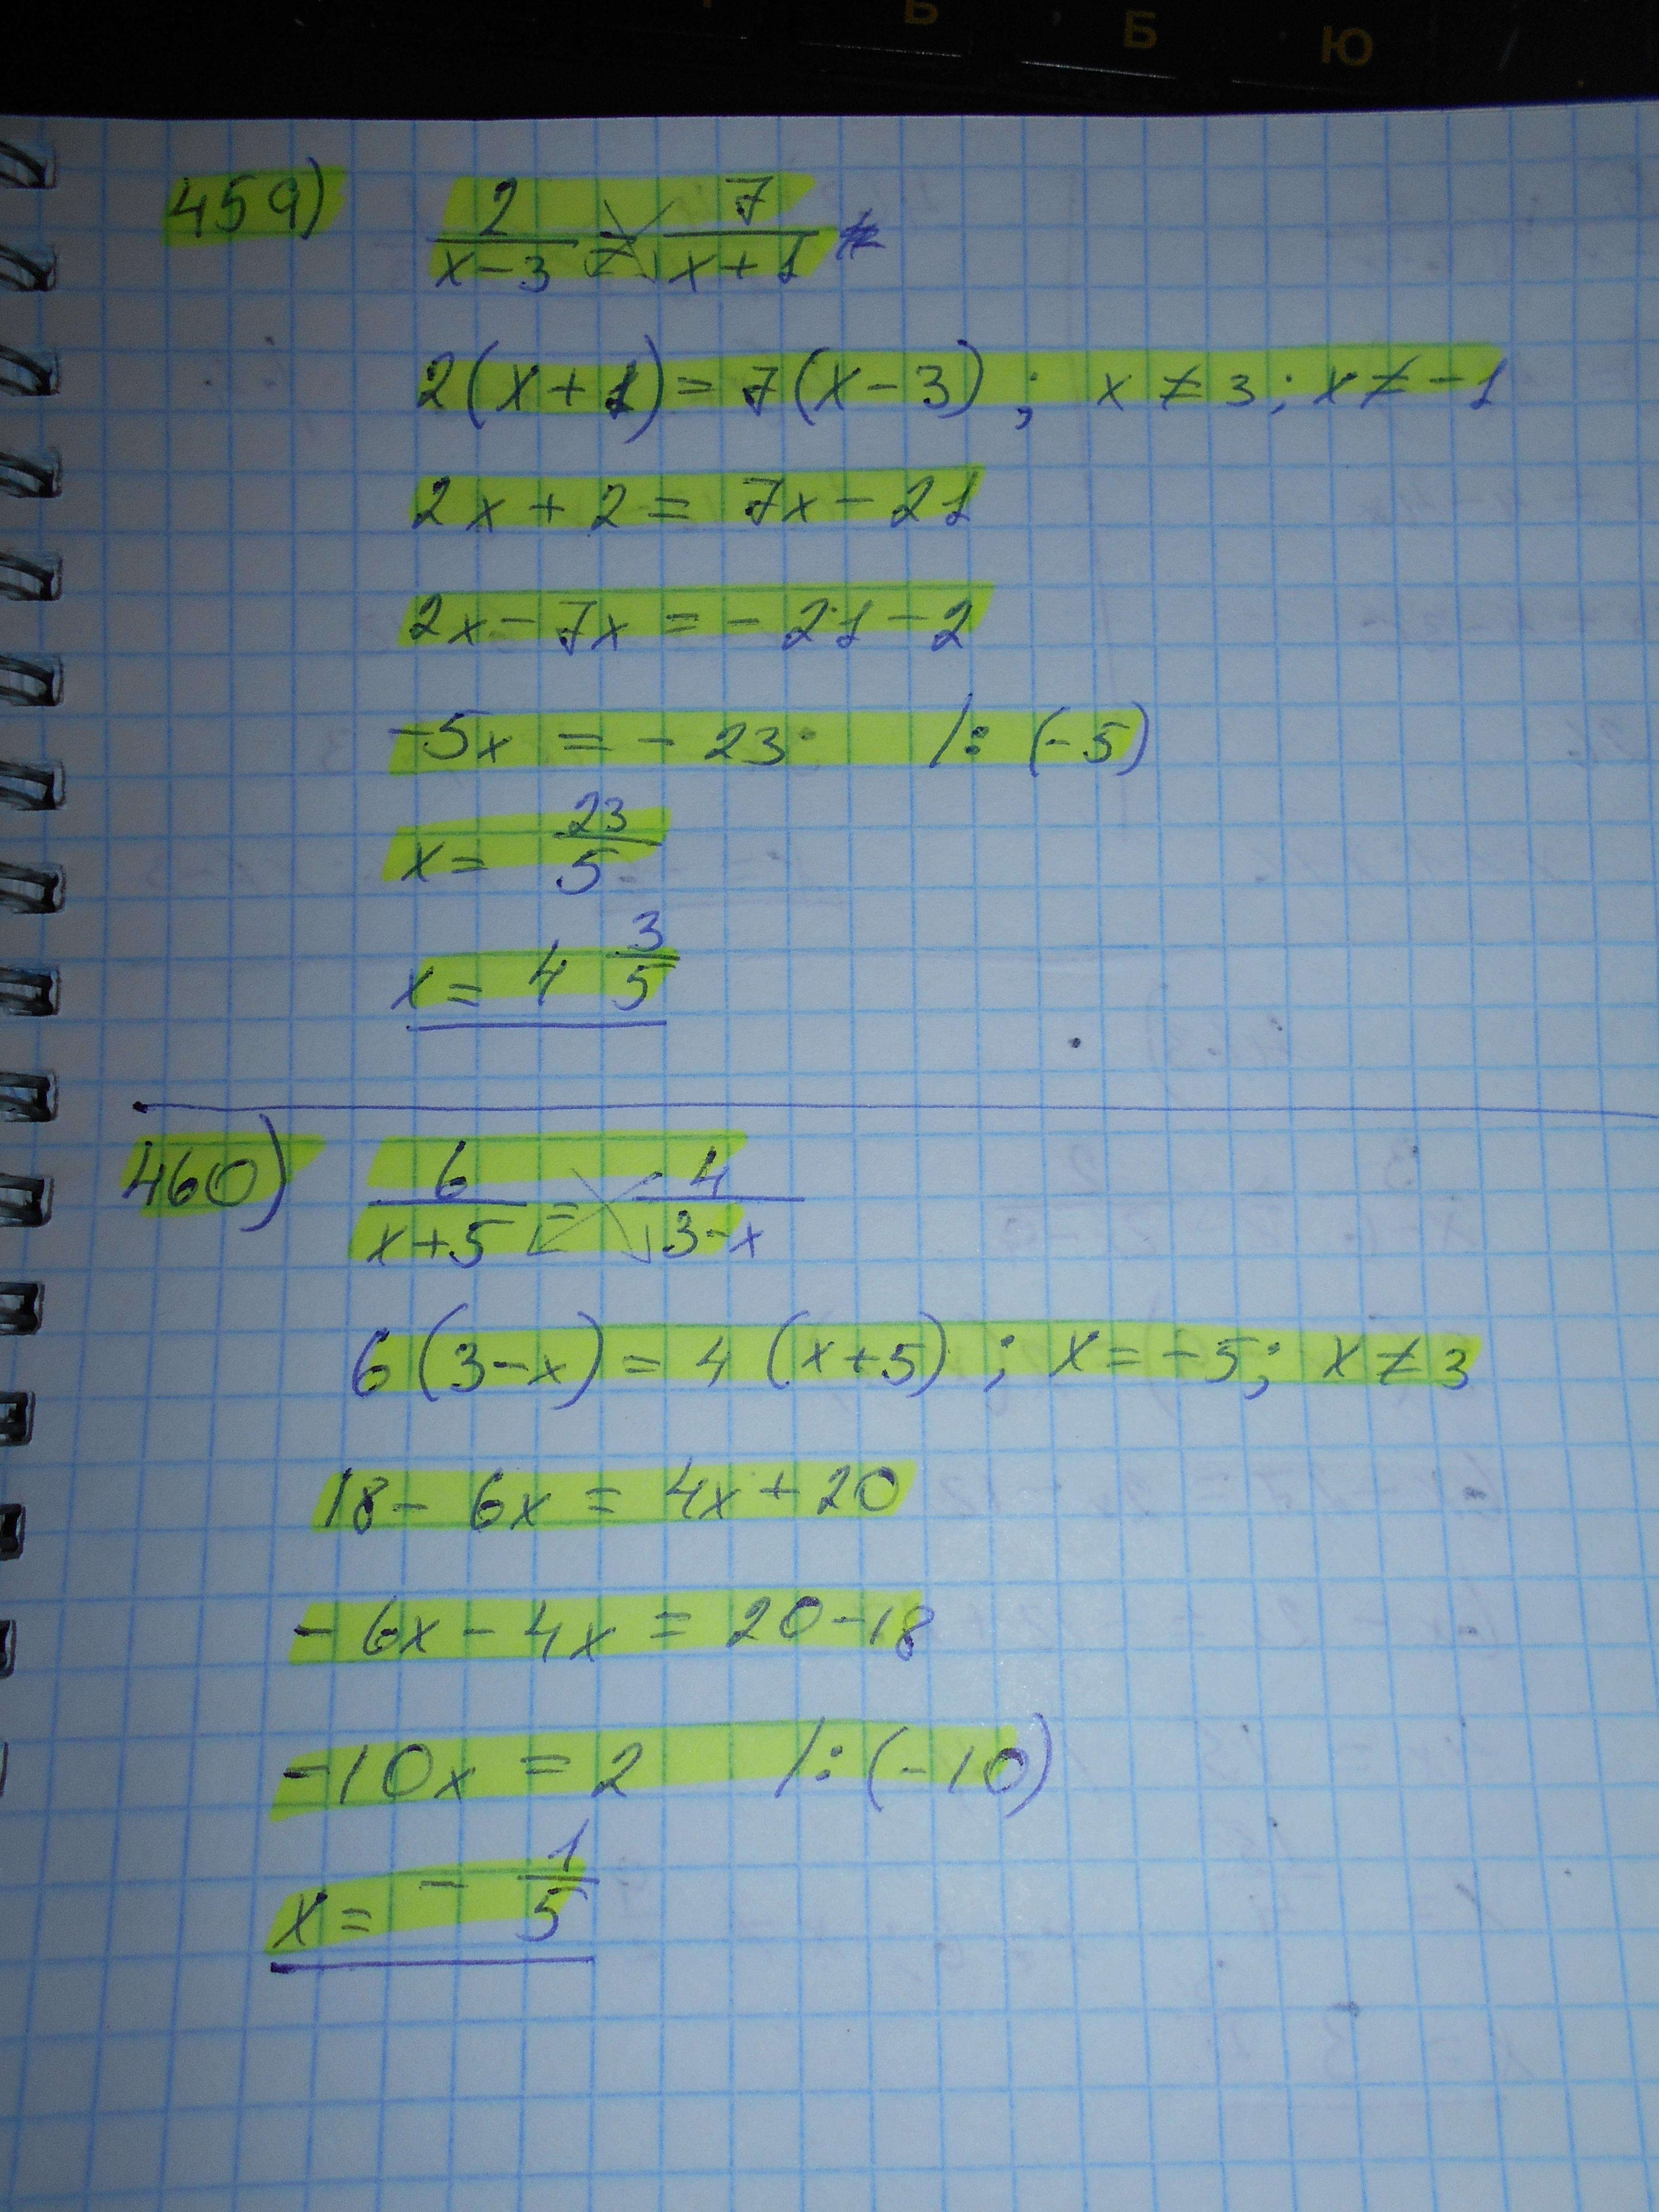 Ь Б Ю
459) 2/(x-3) = 7/(x+1)
2(x+1) = 7(x-3) ; x ≠ 3; x ≠ -1
2x + 2 = 7x - 21
2x - 7x = - 21 - 2
-5x = - 23 /: (-5)
x = 23/5
x = 4 3/5
460) 6/(x+5) = 4/(3-x)
6(3-x) = 4(x+5) ; x = -5; x ≠ 3
18 - 6x = 4x + 20
- 6x - 4x = 20 - 18
-10x = 2 /: (-10)
x = - 1/5